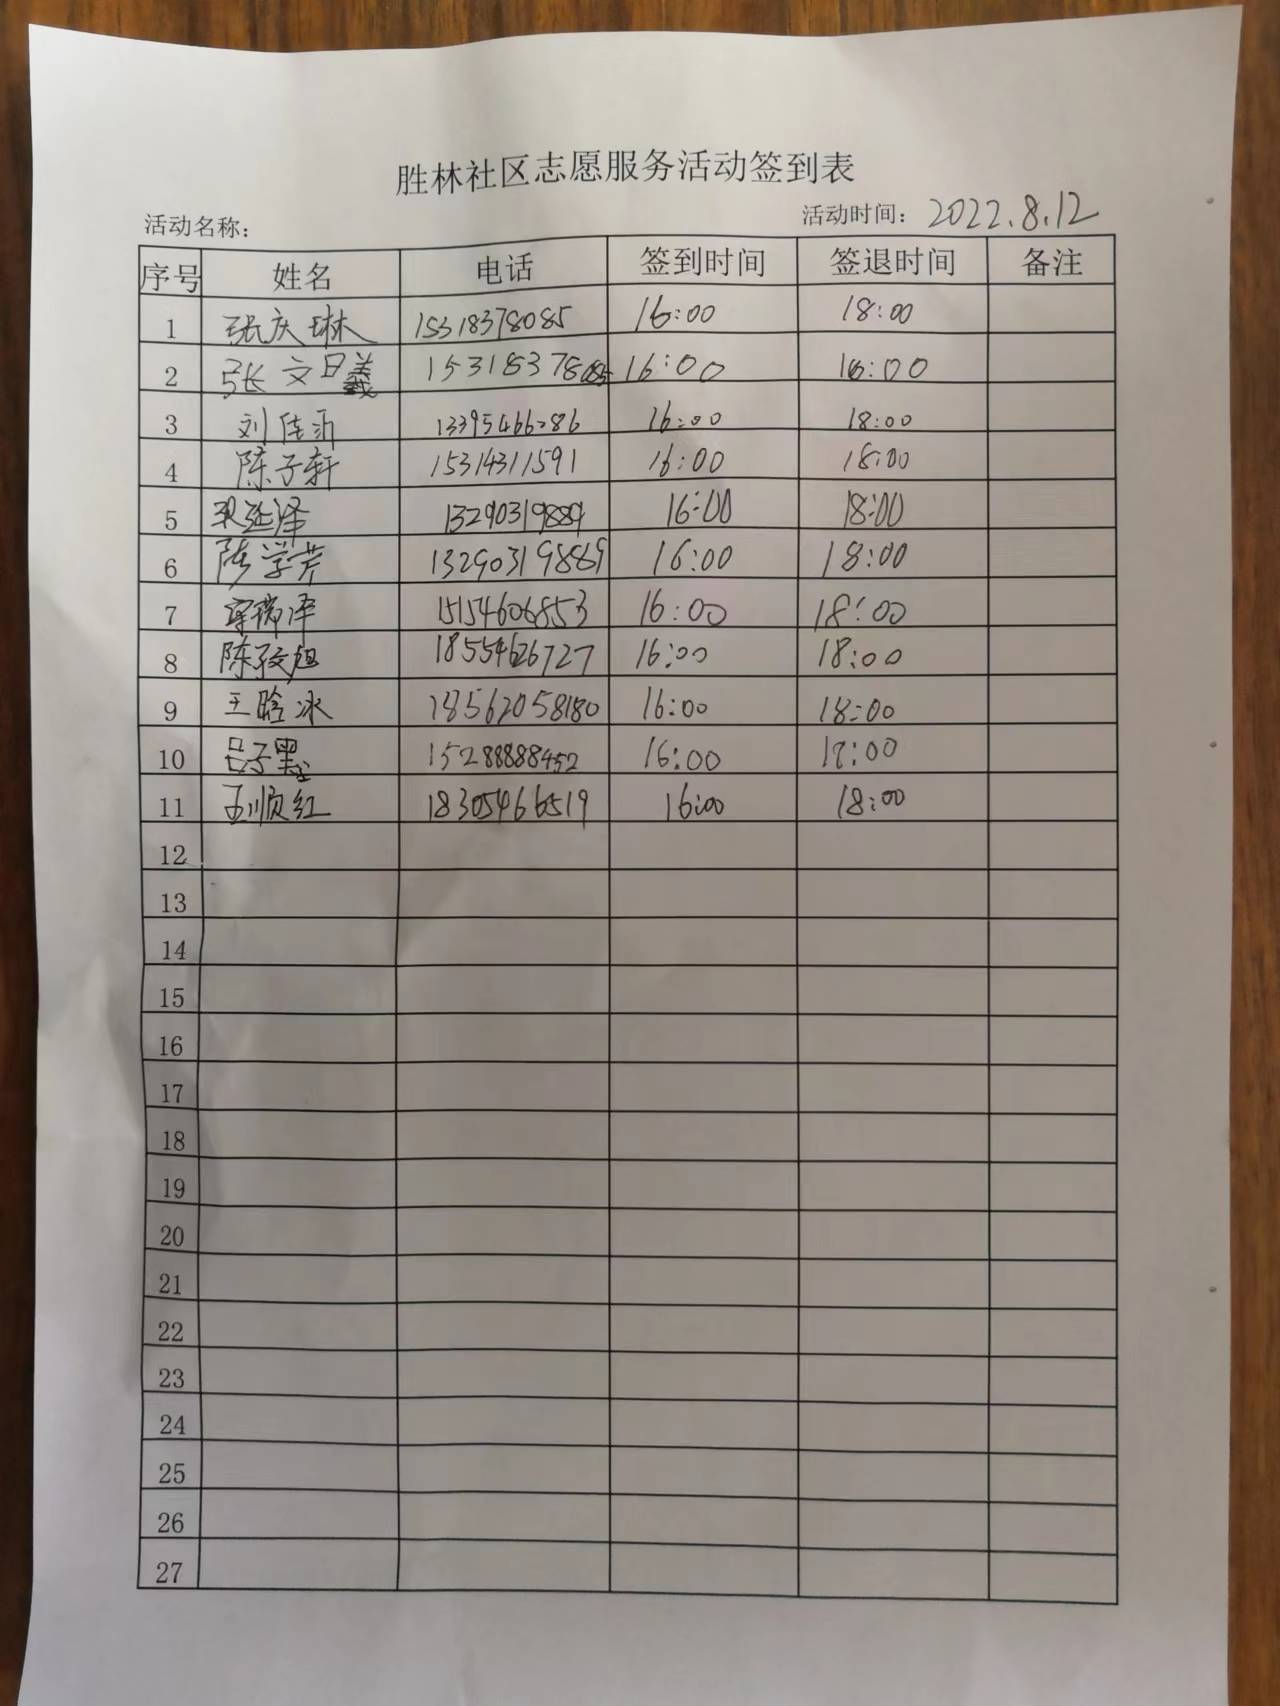 胜林社区志愿服务活动签到表
活动名称: 活动时间: 2022.8.12
序号 姓名 电话 签到时间 签退时间 备注
1 张庆琳 15318378085 16:00 18:00
2 张文曦 15318378085 16:00 16:00
3 刘佳 13395466286 16:00 18:00
4 陈子轩 15314311591 16:00 18:00
5 延泽 13290319889 16:00 18:00
6 陈学芹 13290319889 16:00 18:00
7 瑞泽 15154606853 16:00 18:00
8 陈 旭 18554626727 16:00 18:00
9 王晗冰 18562058180 16:00 18:00
10 吕子墨 15288888452 16:00 18:00
11 王顺红 18305466519 16:00 18:00
12
13
14
15
16
17
18
19
20
21
22
23
24
25
26
27